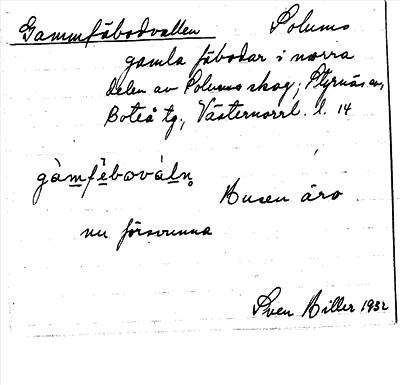 Gammfäbodvallen Polums
gamla fäbodar i norra
delen av Polums skog; Styrnäs sn,
Boteå tg., Västernorrl. l. 14
gàm̲fèbωvàln̥
Husen äro
nu försvunna
Sven Hiller 1932